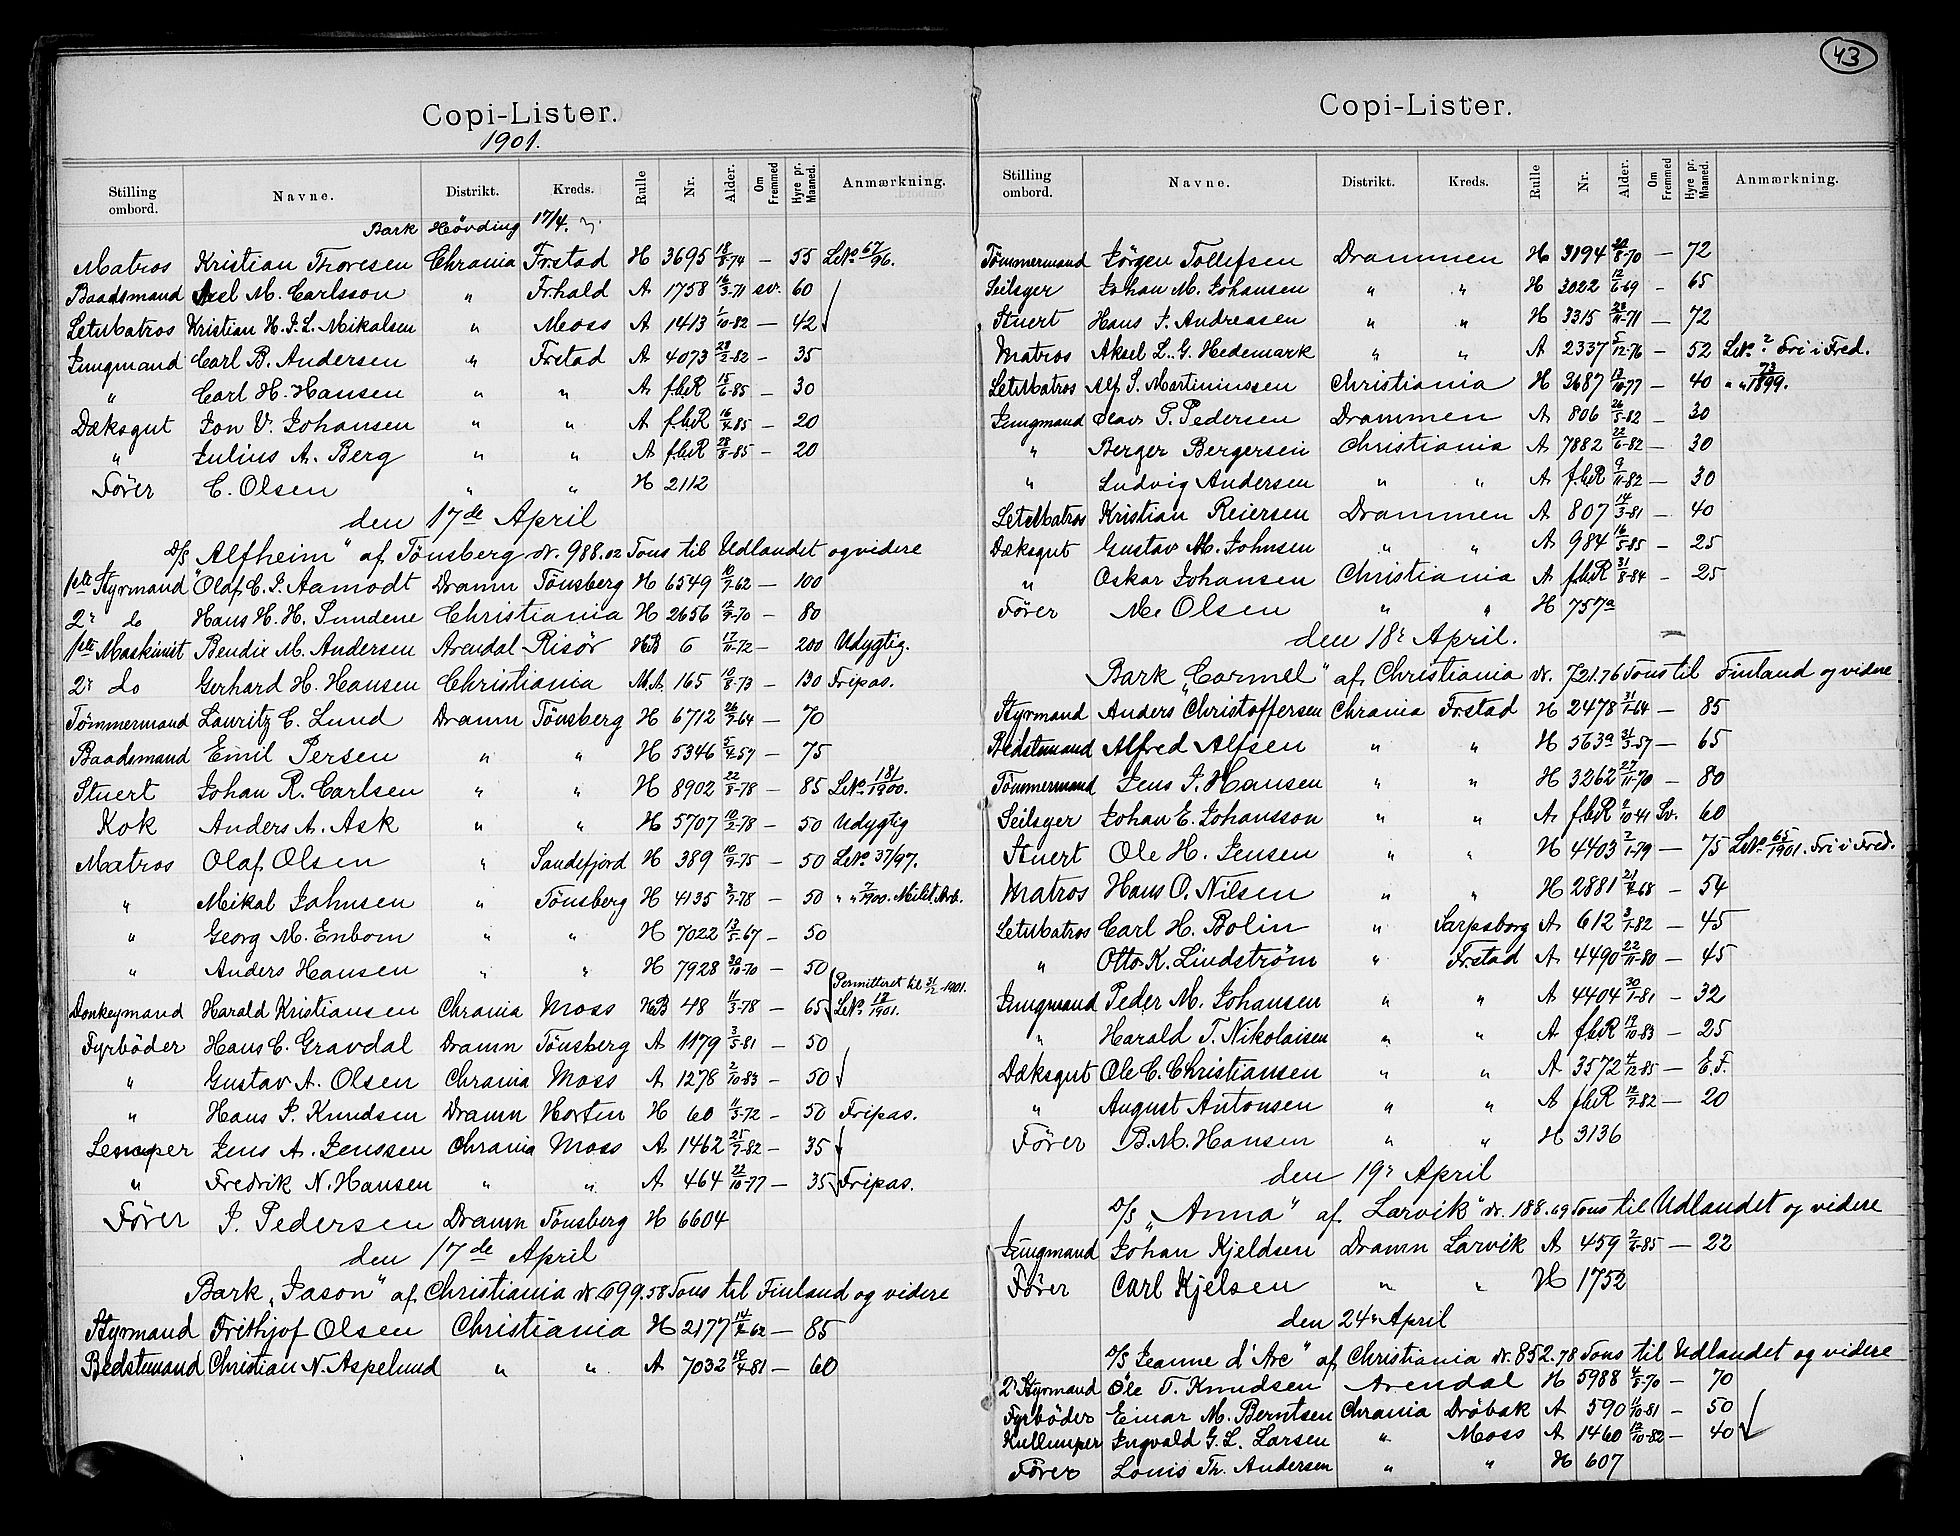 43
Copi-Lister.
1901.
Stilling ombord. Navne. Distrikt. Kreds. Rulle Nr. Alder. Om Fremmed Hyre pr. Maaned. Anmærkning.
Bark Hövding 17/4.
Matros Kristian Thoresen Chrania Frstad H 3695 18/8-74 — 55 LNo. 67/96.
Baadsmand Axel M. Carlsson " Frhald A 1758 16/3-71 sv. 60
LetMatros Kristian H. J. L. Mikalsen " Moss A 1413 1/10-82 — 42
Jungmand Carl B. Andersen " Frstad A 4073 28/2-82 — 35
" Carl H. Hansen " " A fhR 15/6-85 — 30
Dæksgut Jon V. Johansen " " A fhR 16/4-85 — 20
" Julius A. Berg " " A fhR 28/8-85 — 20
Förer C. Olsen " " H 2112
den 17de April
D/S "Alfheim" af Tönsberg dr. 988.02 Tons til Udlandet og videre
1ste Styrmand Olaf C. J. Aamodt Dramn Tönsberg H 6549 10/7-62 — 100
2' do Hans H. H. Sundene Christiania H 2656 12/9-70 — 80
1ste Maskinist Bendix M. Andersen Arendal Risör HB 6 17/11-72 — 200 Udygtig.
2' do Gerhard H. Hansen Christiania M.A. 165 10/8-73 — 130 Fripas.
Tömmermand Lauritz C. Lund Dramn Tönsberg H 6712 26/7-64 — 70
Baadsmand Emil Persen " " H 5346 5/4-57 — 75
Stuert Johan R. Carlsen " " H 8902 22/8-78 — 85 LNo. 181/1900.
Kok Anders A. Ask " " H 5707 10/2-78 — 50 Udygtig
Matros Olaf Olsen " Sandefjord H 389 10/9-75 — 50 LNo. 37/97.
" Mikal Johnsen " Tönsberg H 4135 3/7-78 — 50 " " 7/900. Milit. Arb.
" Georg M. Enbom " " H 7022 13/5-67 — 50
" Anders Hansen " " H 7928 30/10-70 — 50
Permitteret til 31/12 1901.
Donkeymand Harald Kristiansen Chrania Moss HB 48 11/3-78 — 65 LNo. 12/1901.
Fyrböder Hans C. Gravdal Dramn Tönsberg A 1179 3/5-81 — 50
" Gustav A. Olsen Chrania Moss A 1278 2/10-83 — 50
" Hans J. Knudsen Dramn Horten H 60 11/3-72 — 50 Fripas.
Lemper Jens A. Jenssen Chrania Moss A 1462 25/7-82 — 35
" Fredrik N. Hansen " " A 464 22/10-77 — 35 Fripas.
Förer J. Pedersen Dramn Tönsberg H 6604
den 17de April
Bark "Jason" af Christiania dr. 699.58 Tons til Finland og videre
Styrmand Frithjof Olsen Christiania H 2177 14/4-62 — 85
Bedstemand Christian N. Aspelund " " A 7032 19/4-81 — 60
Copi-Lister.
Stilling ombord. Navne. Distrikt. Kreds. Rulle Nr. Alder. Om Fremmed Hyre pr. Maaned. Anmærkning.
Tömmermand Jörgen Tollefsen Drammen H 3194 20/8-70 — 72
Seilsyer Johan M. Johansen " " H 3022 12/6-69 — 65
Stuert Hans J. Andreasen " " H 3315 28/11-71 — 72
Matros Aksel L. G. Hedemark " " A 2337 5/12-76 — 52 LNo. ? Fri i Fred.
LetMatros Alf S. Martiniussen Christiania H 3687 13/10-77 — 40 " " 73/1899.
Jungmand Olav G. Pedersen Drammen A 806 26/5-82 — 30
" Berger Bergersen Christiania A 7882 22/6-82 — 30
" Ludvig Andersen " " A fhR 9/11-82 — 30
LetMatros Kristian Reiersen Drammen A 807 14/3-81 — 40
Dæksgut Gustav M. Johnsen " " A 984 16/5-85 — 25
" Oskar Johansen Christiania A fhR 31/8-84 — 25
Förer M. Olsen " " H 757a
den 18' April.
Bark "Carmel" af Christiania dr. 721.76 Tons til Finland og videre
Styrmand Anders Christoffersen Chrania Frstad H 2478 31/1-64 — 85
Bedstemand Alfred Alfsen " " H 563a 31/3-57 — 65
Tömmermand Jens J. Hansen " " H 3262 27/11-70 — 80
Seilsyer Johan E. Johansson " " A fhR 9/10 41 Sv. 60
Stuert Ole H. Jensen " " H 4403 2/1-79 — 75 LNo. 65/1901. Fri i Fred.
Matros Hans O. Nilsen " " H 2881 21/4-68 — 54
LetMatros Carl H. Bolin " Sarpsborg A 612 3/1-82 — 45
" Otto K. Lindström " Frstad A 4490 22/11-80 — 45
Jungmand Peder M. Johansen " " A 4404 30/1-81 — 32
" Harald T. Nikolaisen " " A fhR 19/10-83 — 25
Dæksgut Ole C. Christiansen " " A 3572 4/12-85 — E.F.
" August Antonsen " " A fhR 12/7-82 — 20
Förer B. M. Hansen " " H 3136
den 19' April
D/S "Anna" af Larvik dr. 188.69 Tons til Udlandet og videre
Jungmand Johan Kjeldsen Dramn Larvik A 459 2/6-85 — 22
Förer Carl Kjelsen " " H 1752
den 24' April
D/S Jeanne d'Arc" af Christiania dr. 852.78 Tons til Udlandet og videre
2' Styrmand Ole T. Knudsen Arendal H 5988 4/8-70 — 70
Fyrböder Einar M. Berntsen Chrania Dröbak A 590 1/10-81 — 50
Kullemper Ingvald G. L. Larsen " Moss A 1460 12/10-82 — 40
Förer Louis Th. Andersen " " H 607